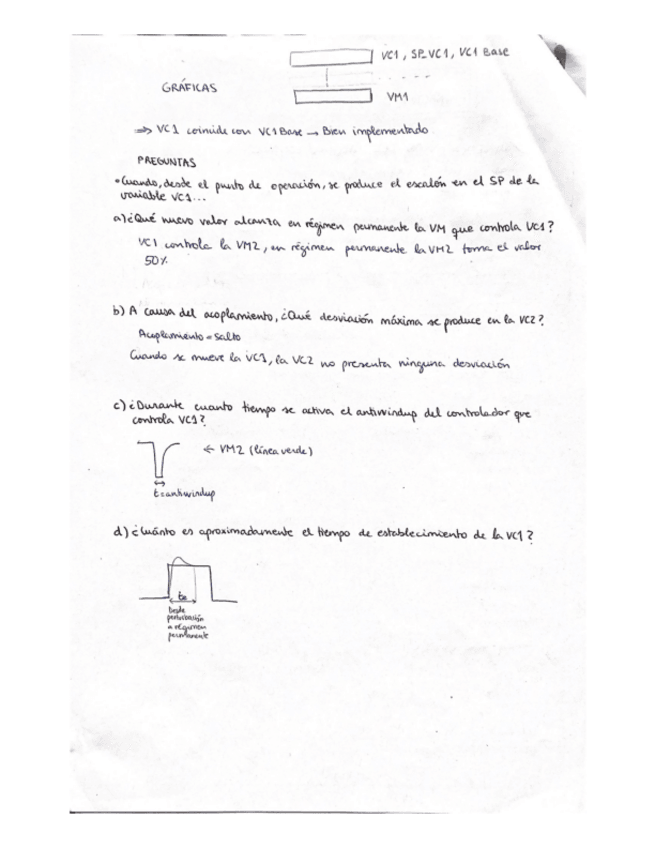 VC1, SP_VC1, VC1 Base
GRÁFICAS
VM1
⇒ VC1 coincide con VC1Base → Bien implementado
PREGUNTAS
• Cuando, desde el punto de operación, se produce el escalón en el SP de la
variable VC1...
a) ¿Qué nuevo valor alcanza en régimen permanente la VM que controla VC1?
VC1 controla la VM2, en régimen permanente la VM2 toma el valor
50%
b) A causa del acoplamiento, ¿Qué desviación máxima se produce en la VC2?
Acoplamiento = Salto
Cuando se mueve la VC1, la VC2 no presenta ninguna desviación
c) ¿Durante cuanto tiempo se activa el antiwindup del controlador que
controla VC1?
← VM2 (línea verde)
t = antiwindup
d) ¿Cuánto es aproximadamente el tiempo de establecimiento de la VC1?
te
Desde
perturbación
a régimen
permanente